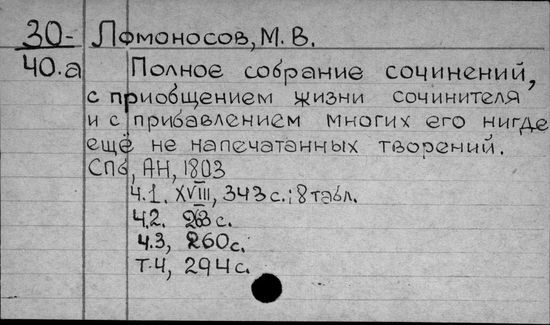 30- Ломоносов, М. В.
40.а Полное собрание сочинений,
с приобщением жизни сочинителя
и с прибавлением многих его нигде
ещё не напечатанных творений.
СПб, АН, 1803
ч.1. XVIII, 343 с.; 8 табл.
ч.2. 263 с.
ч.3, 260 с.
т.4, 294 с.